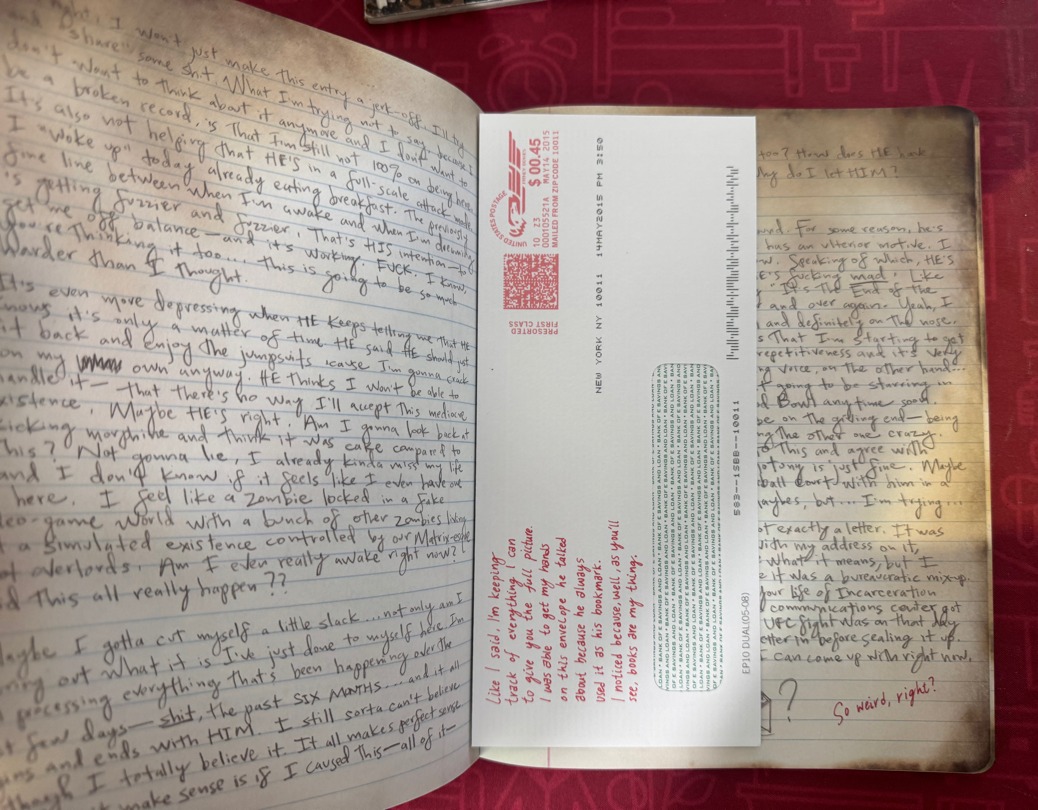 right, I won't just make this entry a jerk-off. I'll try
"share" some shit. What I'm trying not to say, because I
don't want to think about it anymore and I don't want to
be a broken record, is that I'm still not 100% on being here.
It's also not helping that HE'S in a full-scale attack mode.
I "woke up" today already eating breakfast. The previously
fine line between when I'm awake and when I'm dreaming
's getting fuzzier and fuzzier. That's HIS intention—to
get me off balance—and it's working. FUCK. I know,
you're thinking it too... This is going to be so much
harder than I thought.
It's even more depressing when HE keeps telling me that HE
knows it's only a matter of time. HE said HE should just
sit back and enjoy the jumpsuits 'cause I'm gonna crack
on my own anyway. HE thinks I won't be able to
handle it—that there's no way I'll accept this mediocre
existence. Maybe HE's right. Am I gonna look back at
kicking morphine and think it was cake compared to
this? Not gonna lie... I already kinda miss my life
and I don't know if it feels like I even have one
here. I feel like a zombie locked in a fake
video-game world with a bunch of other zombies living
a simulated existence controlled by our Matrix-esque
overlords. Am I even really awake right now?
Did this all really happen??
I gotta cut myself a little slack...not only am I
out what it is I've just done to myself here. I'm
processing everything that's been happening over the
last few days—shit, the past SIX MONTHS...and it all
begins and ends with HIM. I still sorta can't believe
though I totally believe it. It all makes perfect sense
make sense is if I caused this—all of it—
UNITED STATES POSTAGE
$ 00.45
10 23
000105521A MAY14 2015
MAILED FROM ZIP CODE 10011
PRESORTED
FIRST CLASS
NEW YORK NY 10011 14MAY2015 PM 3:50
583--1SBB--10011
BANK OF E SAVINGS AND LOAN
EP10 DUAL(05-08)
Like I said, I'm keeping
track of everything I can
to give you the full picture.
I was able to get my hands
on this envelope he talked
about because he always
used it as his bookmark.
I noticed because, well, as you'll
see, books are my thing.
How does HE have
Why do I let HIM?
For some reason, he's
has an ulterior motive. I
Speaking of which, HE'S
fucking mad. Like
"It's the End of the
and over again. Yeah, I
and definitely on the nose.
that I'm starting to get
repetitiveness and it's very
voice, on the other hand...
going to be starring in
Bowl anytime soon.
be on the giving end—being
the other one crazy.
this and agree with
is just fine. Maybe
ball court with him in a
but... I'm trying...
exactly a letter. It was
with my address on it,
what it means, but I
it was a bureaucratic mix-up.
your life of Incarceration
communications center got
UFC fight was on that day
in before sealing it up.
I can come up with right now.
?
So weird, right?